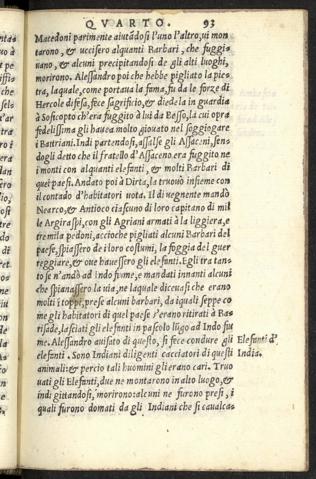 QVARTO. 93
Macedoni parimente aiutādosi l'uno l'altro, ui mon
tarono, & uccisero alquanti Barbari, che fuggi-
uano, & alcuni precipitandosi de gli alti luoghi,
morirono. Alessandro poi che hebbe pigliato la pie-
tra, laquale, come portaua la fama, fu da le forze di
Hercole difesa, fece sagrificio, & diede la in guardia
à Soficopto ch'era fuggito à lui da Besso, la cui opra
fedelissima gli hauea molto giouato nel soggiogare
i Battriani. Indi partendosi, assalse gli Assaceni, sen-
dogli detto che il fratello d'Assaceno era fuggito ne
i monti con alquanti elefanti, & molti Barbari di
quel paesi. Andato poi à Dirta, la trouò insieme con
il contado d'habitatori uota. Il dì uegnente mandò
Nearco, & Antioco ciascuno di loro capitano di mil
le Argiraspi, con gli Agriani armati à la liggiera, e
tre mila pedoni, accioche pigliati alcuni Barbari del
paese, spiassero de i loro costumi, la foggia del guer
reggiare, & oue hauessero gli elefanti. Egli tra tan-
to se n'andò ad Indo fiume, e mandati innanti alcuni
che spianassero la uia, ne laquale diceuasi che erano
molti ītoppi, prese alcuni barbari, da iquali seppe co
me gli habitatori di quel paese s'erano ritirati à Ba
risade, lasciati gli elefanti in pascolo lūgo ad Indo fiu
me. Alessandro auisato di questo, si fece condure gli
elefanti. Sono Indiani diligenti cacciatori di questi
animali: & percio tali huomini gli erano cari. Tro
uati gli Elefanti, due ne montarono in alto luogo, &
indi gittandosi, morirono: alcuni ne furono presi, i
quali furono domati da gli Indiani che si caualcas
Elefanti d'
India.